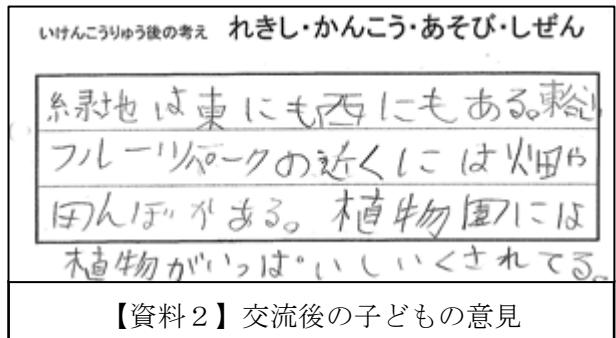 いけんこうりゅう後の考え れきし・かんこう・あそび・しぜん
緑地は東にも西にもある。東谷山
フルーツパークの近くには畑や
田んぼがある。植物園には
植物がいっぱいしいくされてる。
【資料2】交流後の子どもの意見